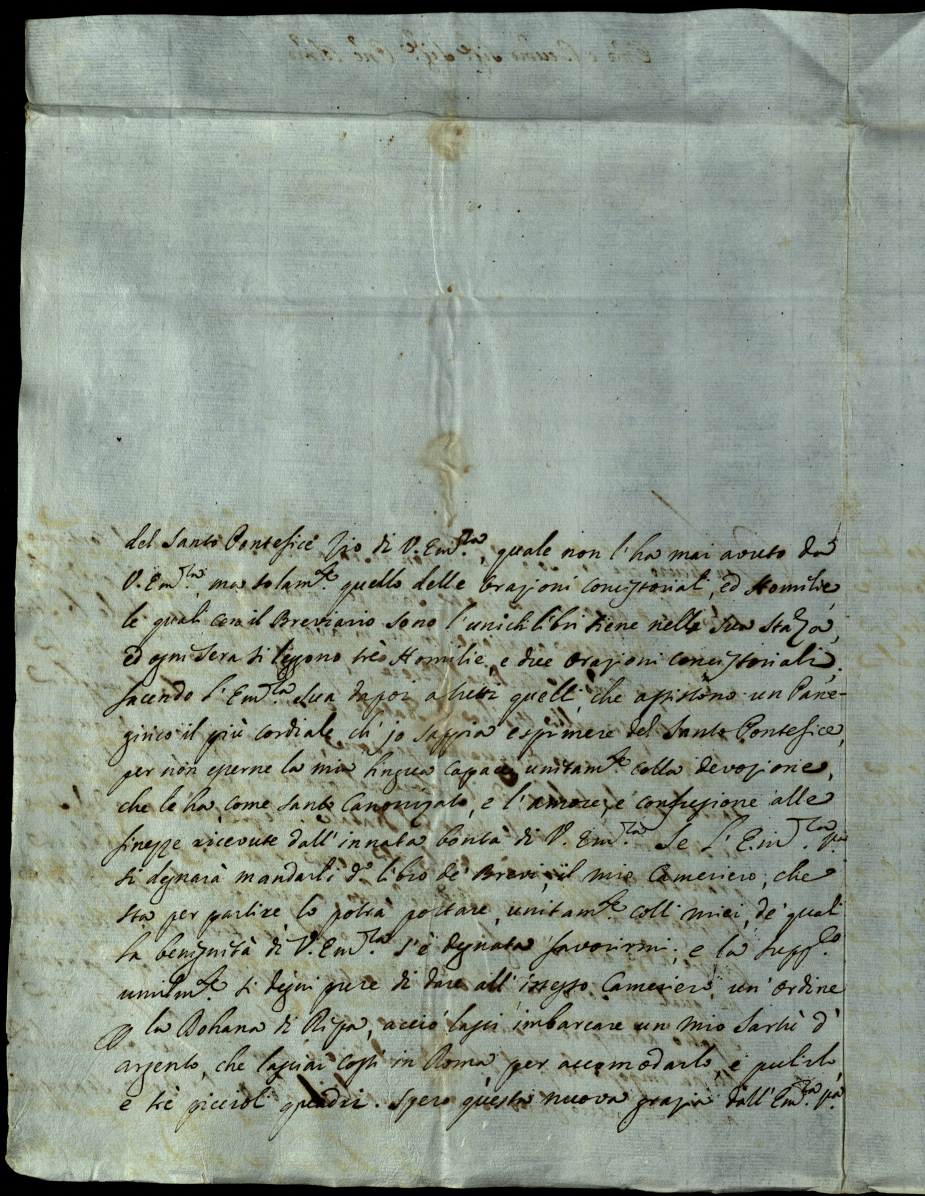 del Santo Pontefice Zio di V. Em.za, quale non l'ha mai avuto da
V. Em.za, ma solam.te quello delle Orazioni Concistoriali, ed Homilie,
le quali con il Breviario sono l'unichi libri tiene nella sua Stanza,
ed ogni sera si leggono trè Homilie, e due Orazioni Concistoriali,
facendo l'Em.za Sua dapoi a tutti quelli, che assistono un Pane-
girico il più cordiale ch'io sappia esprimere del Santo Pontefice,
per non esserne la mia lingua capace, unitam.te colla devozione,
che le ha come Santo Canonizato, e l'amore, e confusione alle
finezze ricevute dall'innata bontà di V. Em.za Se l'Em.za V.ra
si degnarà mandarli d.o libro de' Brevi, il mio Cameriero, che
sta per partire lo potrà portare, unitam.te colli miei, de' quali
la benignità di V. Em.za s'è degnata favorirmi; e la supp.co
umilm.te si degni pure di dare all'istesso Camerier un'ordine
per la Dohana di Ripa, acciò lassi imbarcare un mio Sarhù d'
argento, che lasciai costì in Roma per accomodarlo, e pulirlo,
e trè piccioli quadri. Spero questa nuova grazia dall'Em.za V.ra